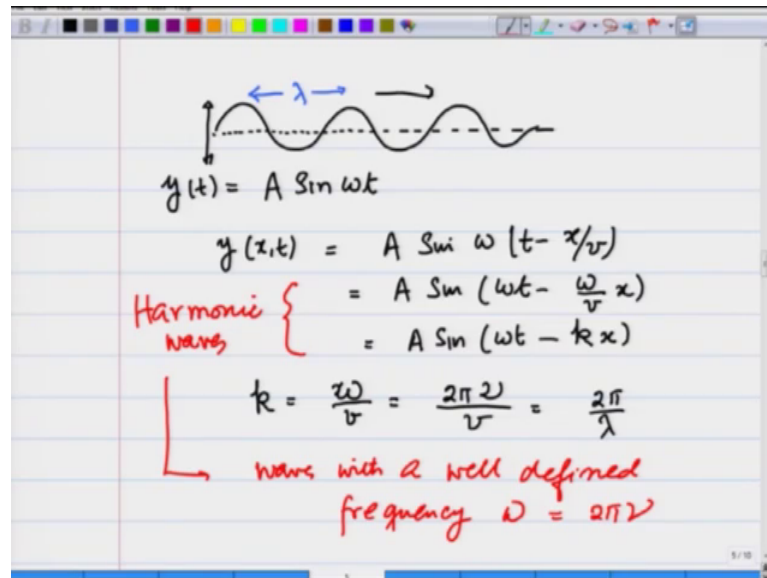 ← λ →
y(t) = A Sin ωt
y(x,t) = A Sin ω (t - x/v)
Harmonic waves { = A Sin (ωt - ω/v x)
= A Sin (ωt - kx)
k = ω/v = 2πν/v = 2π/λ
wave with a well defined
frequency ω = 2πν
5/10